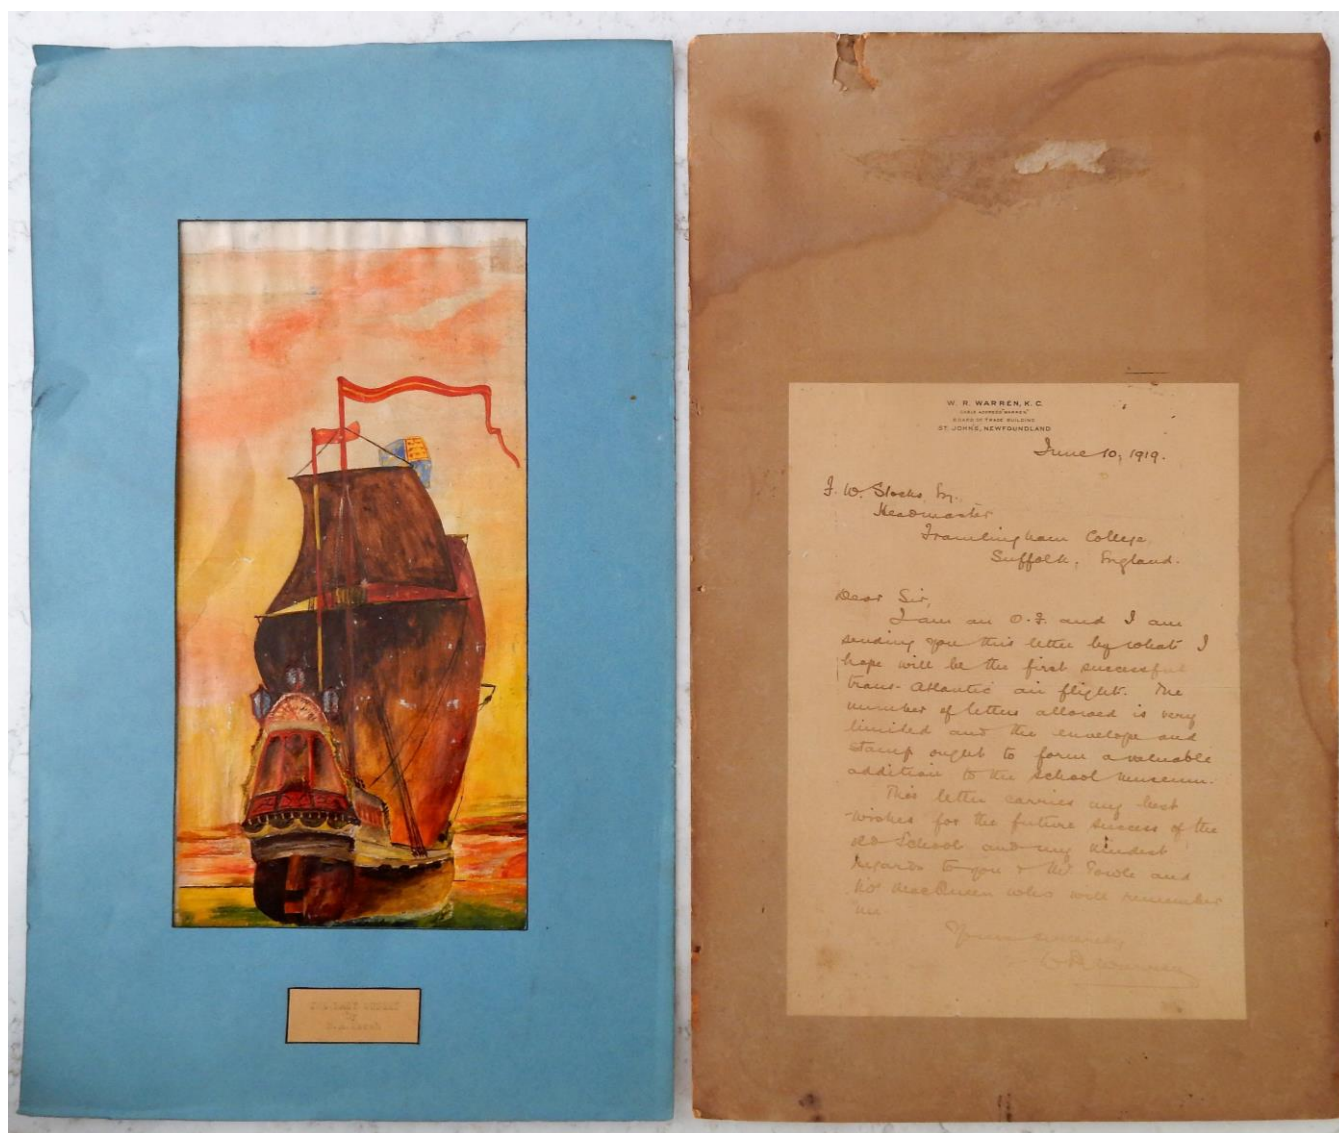 W. R. WARREN, K. C.
CABLE ADDRESS "WARREN"
BOARD OF TRADE BUILDING
ST. JOHN'S, NEWFOUNDLAND
June 10, 1919.
F. W. Stocks,
Headmaster
Framlingham College
Suffolk, England.
Dear Sir,
I am an O.F. and I am
sending you this letter by what I
hope will be the first successful
trans-Atlantic air flight. The
number of letters allowed is very
limited and the envelope and
stamp ought to form a valuable
addition to the School Museum.
This letter carries my best
wishes for the future success of the
old School and my kindest
regards to you & and
MacQueen who will remember
me
Yours sincerely
W R Warren